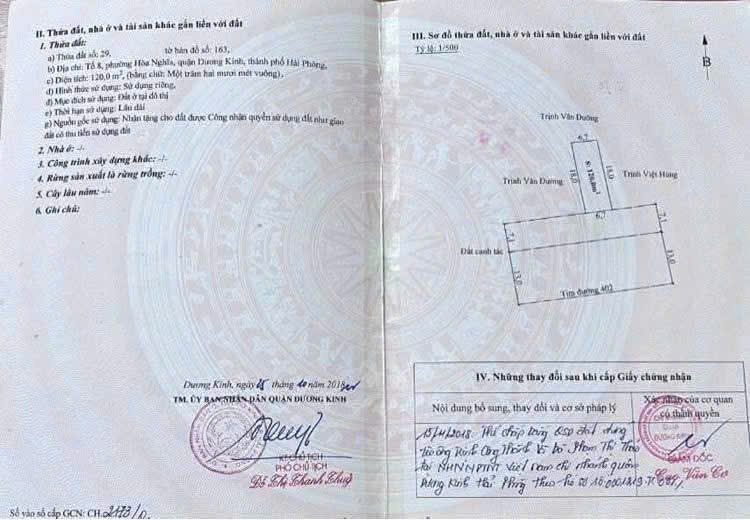 II. Thửa đất, nhà ở và tài sản khác gắn liền với đất
1. Thửa đất:
a) Thửa đất số: 29, tờ bản đồ số: 163,
b) Địa chỉ: Tổ 8, phường Hòa Nghĩa, quận Dương Kinh, thành phố Hải Phòng,
c) Diện tích: 120,0 m², (bằng chữ: Một trăm hai mươi mét vuông),
d) Hình thức sử dụng: Sử dụng riêng,
đ) Mục đích sử dụng: Đất ở tại đô thị
e) Thời hạn sử dụng: Lâu dài
g) Nguồn gốc sử dụng: Nhận tặng cho đất được Công nhận quyền sử dụng đất như giao
đất có thu tiền sử dụng đất
2. Nhà ở: -/-
3. Công trình xây dựng khác: -/-
4. Rừng sản xuất là rừng trồng: -/-
5. Cây lâu năm: -/-
6. Ghi chú:
Dương Kinh, ngày 25 tháng 10 năm
TM. ỦY BAN NHÂN DÂN QUẬN DƯƠNG KINH
KT. CHỦ TỊCH
PHÓ CHỦ TỊCH
Thanh
Số vào sổ cấp GCN: CH.
III. Sơ đồ thửa đất, nhà ở và tài sản khác gắn liền với đất
Tỷ lệ: 1/500
B
Trịnh Văn Đường
6,7
Trịnh Văn Đương
18,0
S: 120,0m²
18,0
Trịnh Việt Hùng
6,7
7,1
7,1
Đất canh tác
13,0
13,0
Tim đường 402
IV. Những thay đổi sau khi cấp Giấy chứng nhận
Nội dung bổ sung, thay đổi và cơ sở pháp lý
Xác nhận của cơ quan
có thẩm quyền
Thế chấp bằng QSD đất
tại NHNN PTNT Việt Nam chi nhánh quận
Dương Kinh Hải Phòng theo hồ sơ
GIÁM ĐỐC
Văn Cơ